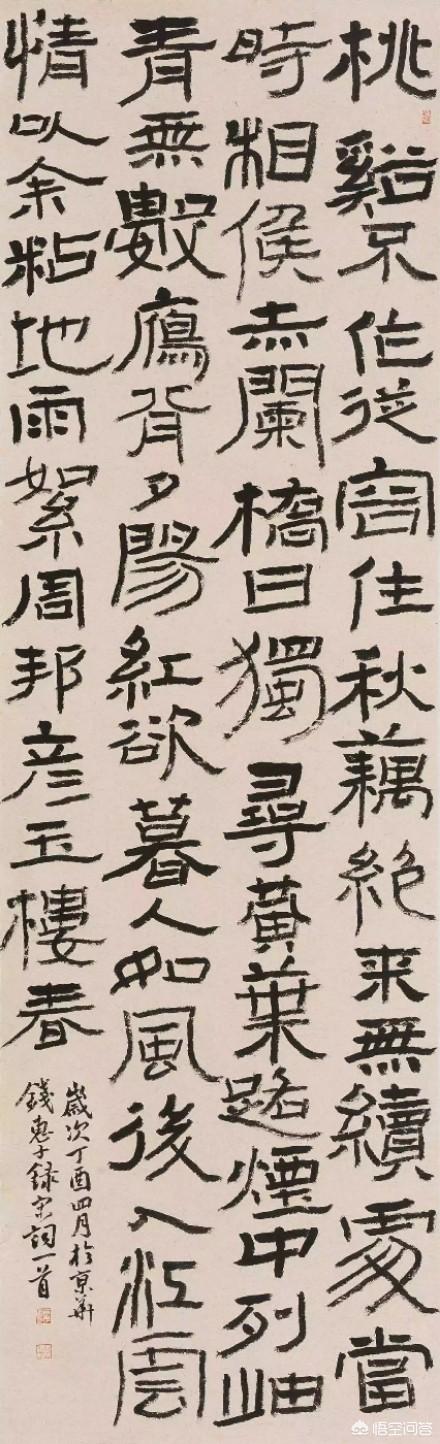 桃谿不作從容住秋藕絕來無續處當
時相候赤闌橋日獨尋黃葉路煙中列岫
青無數鴈背夕陽紅欲暮人如風後入江雲
情以余粘地雨絮周邦彥玉樓春
歲次丁酉四月於京華
錢惠子錄宋詞一首
悟空问答